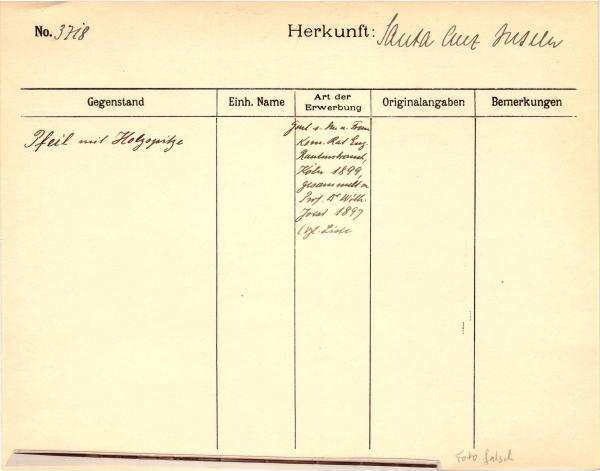 No. 3718
Herkunft: Santa Cruz Inseln
Gegenstand
Einh. Name
Art der Erwerbung
Originalangaben
Bemerkungen
Pfeil mit Holzspitze
u. Frau
Kom. Rat Eug.
Rautenstrauch,
Köln 1899,
gesammelt v.
Prof. Dr Wilh.
Joest 1897
Liste
Foto falsch